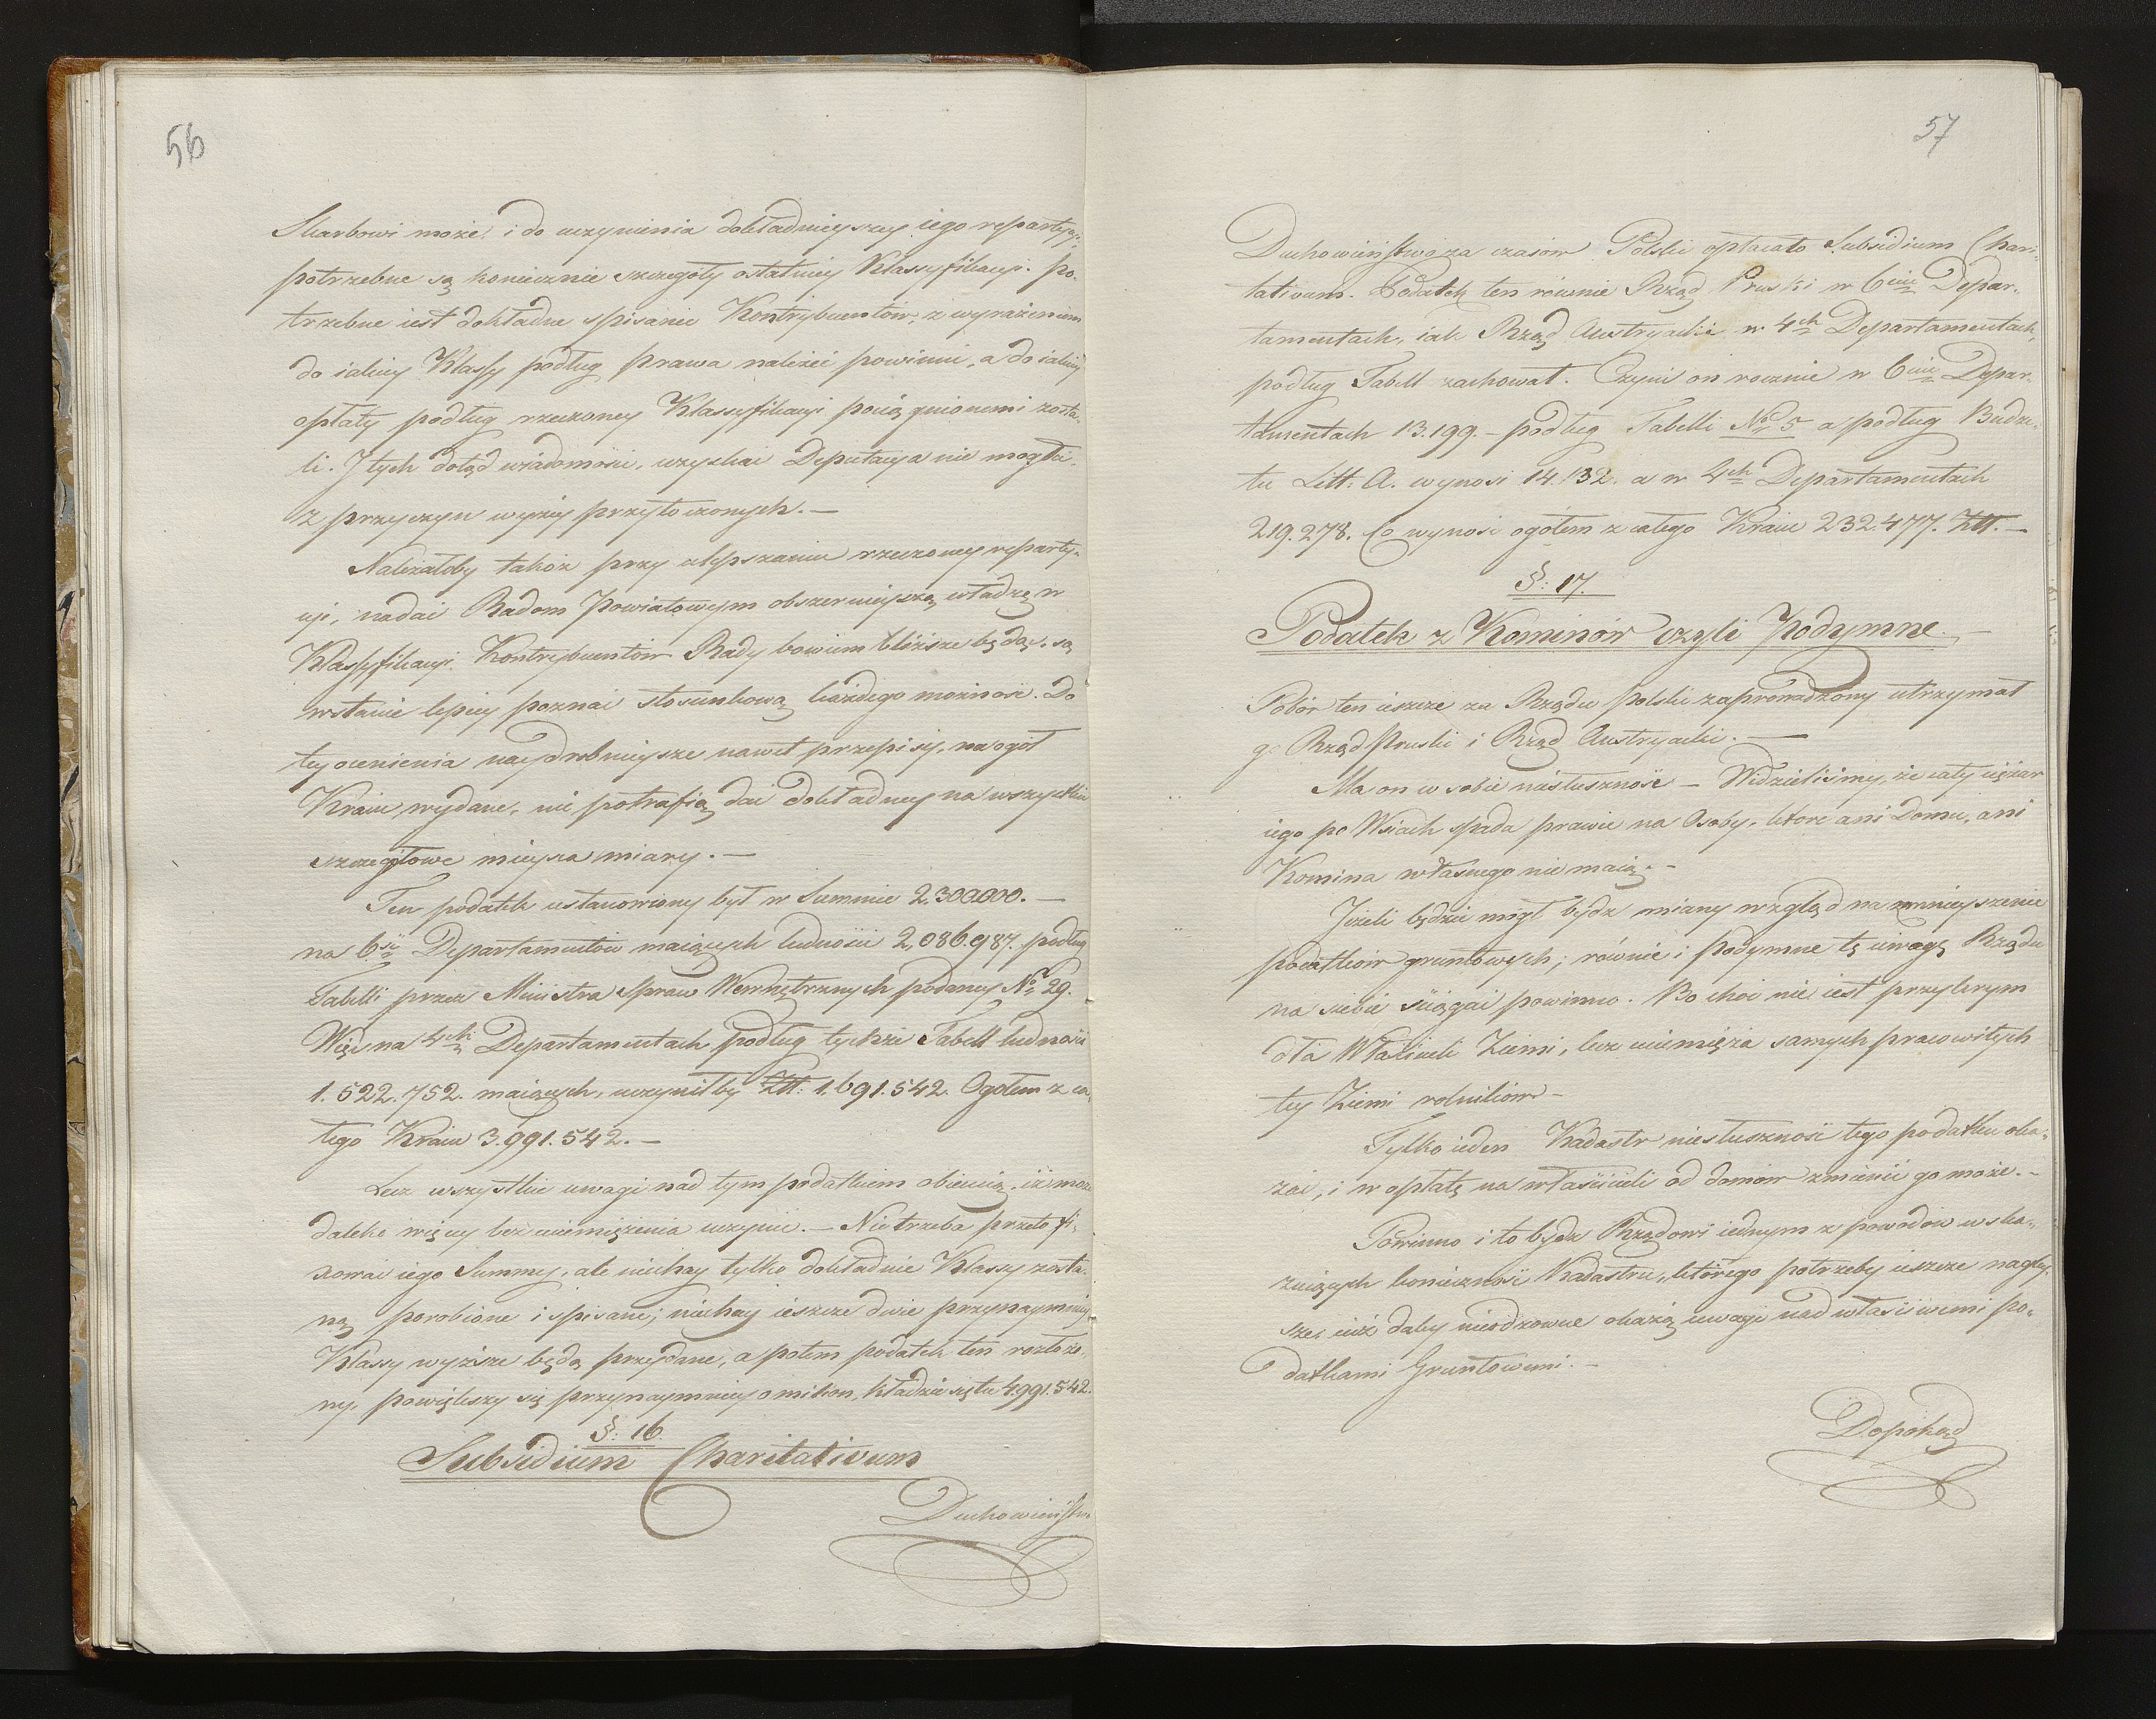 56
Skarbowi może i do uczynienia dokładnieyszey iego repartycyi,
potrzebne są koniecznie szczegóły ostatniey Klassyfikacyi. po-
trzebne iest dokładne spisanie Kontrybuentów, z wyrażeniem
do iakiey Klassy podług prawa należeć powinni, a do iakiey
opłaty podług rzeczoney Klassyfikacyi pociągnionemi zosta-
li. I tych dotąd wiadomości, uzyskać Deputacya nie mogła,
z przyczyn wyżey przytoczonych. —
Należałoby takoż przy ulepszaniu rzeczoney reparty-
cyi, nadać Radom Powiatowym obszernieyszą władzę w
Klassyfikacyi Kontrybuentów Rady bowiem bliższe będąc, są
wstanie lepiey poznać stosunkową każdego możność. Do
tey ocenienia naydrobnieysze nawet przepisy, na ogół
Kraiu wydane, nie potrafią dać dokładney na wszystkie
szczegółowe mieysca miary. —
Ten podatek ustanowiony był w Summie 2,300.000. —
na 6ść Departamentów maiących ludności 2,086.987. podług
Tabelli przez Ministra Spraw Wewnętrznych podaney No 29.
Więc na 4ch Departamentach podług teyże Tabell ludności
1.522.752. maiących, uczyniłby Złt: 1.691.542. Ogółem z ca-
łego Kraiu 3.991.542. —
Lecz wszystkie uwagi nad tym podatkiem obiecuią, iż może
daleko więcey bez uciemiężenia uczynić. — Nie trzeba przeto fi-
xować iego Summy, ale niechay tylko dokładnie Klassy zosta-
ną porobione i spisane; niechay ieszcze dwie przynaymniey
Klassy wyższe będą przydane, a potem podatek ten rozłożo-
ny, powiększy się przynaymniey o milion, kładzie się tu 4.991.542.
§: 16.
Subsidium Charitativum
Duchowieństwo
57
Duchowieństwo za czasów Polski opłacało Subsidium Chari-
tativum. Podatek ten równie Rząd Pruski w 6ciu Depar-
tamentach, iak Rząd Austryacki w 4ch Departamentach,
podług Tabell zachował. Czyni on rocznie w 6ciu Depar-
tamentach 13.199. – podług Tabelli No 5 a podług Budże-
tu Litt: A. wynosi 14.132. a w 4ch Departamentach
219.278. Co wynosi ogółem z całego Kraiu 232.477. Złt. —
§: 17.
Podatek z Kominów czyli Podymne. —
Pobór ten ieszcze za Rządu polski zaprowadzony utrzymał
go Rząd Pruski i Rząd Austryacki. —
Ma on w sobie niesłuszność — Widzieliśmy, że cały ciężar
iego po Wsiach spada prawie na Osoby, które ani Domu, ani
Komina własnego nie maią. –
Jeżeli będzie mógł bydz miany wzgląd na zmnieyszenie
podatków gruntowych; równie i podymne tę uwagę Rządu
na siebie ściągać powinno. Bo choć nie iest przykrym
dla Właścicieli Ziemi, lecz uciemięża samych pracowitych
tey Ziemi rolników –
Tylko ieden Kadastr niesłuszność tego podatku oka-
zać, i w opłatę na właścicieli od domów zmienić go może. –
Powinno i to bydz Rządowi iednym z powodów wska-
zuiących konieczność Kadastru, którego potrzeby ieszcze nagley-
sze, iuż daley nieodzowne okażą uwagi nad właściwemi po-
datkami Gruntowemi. –
Dopokąd